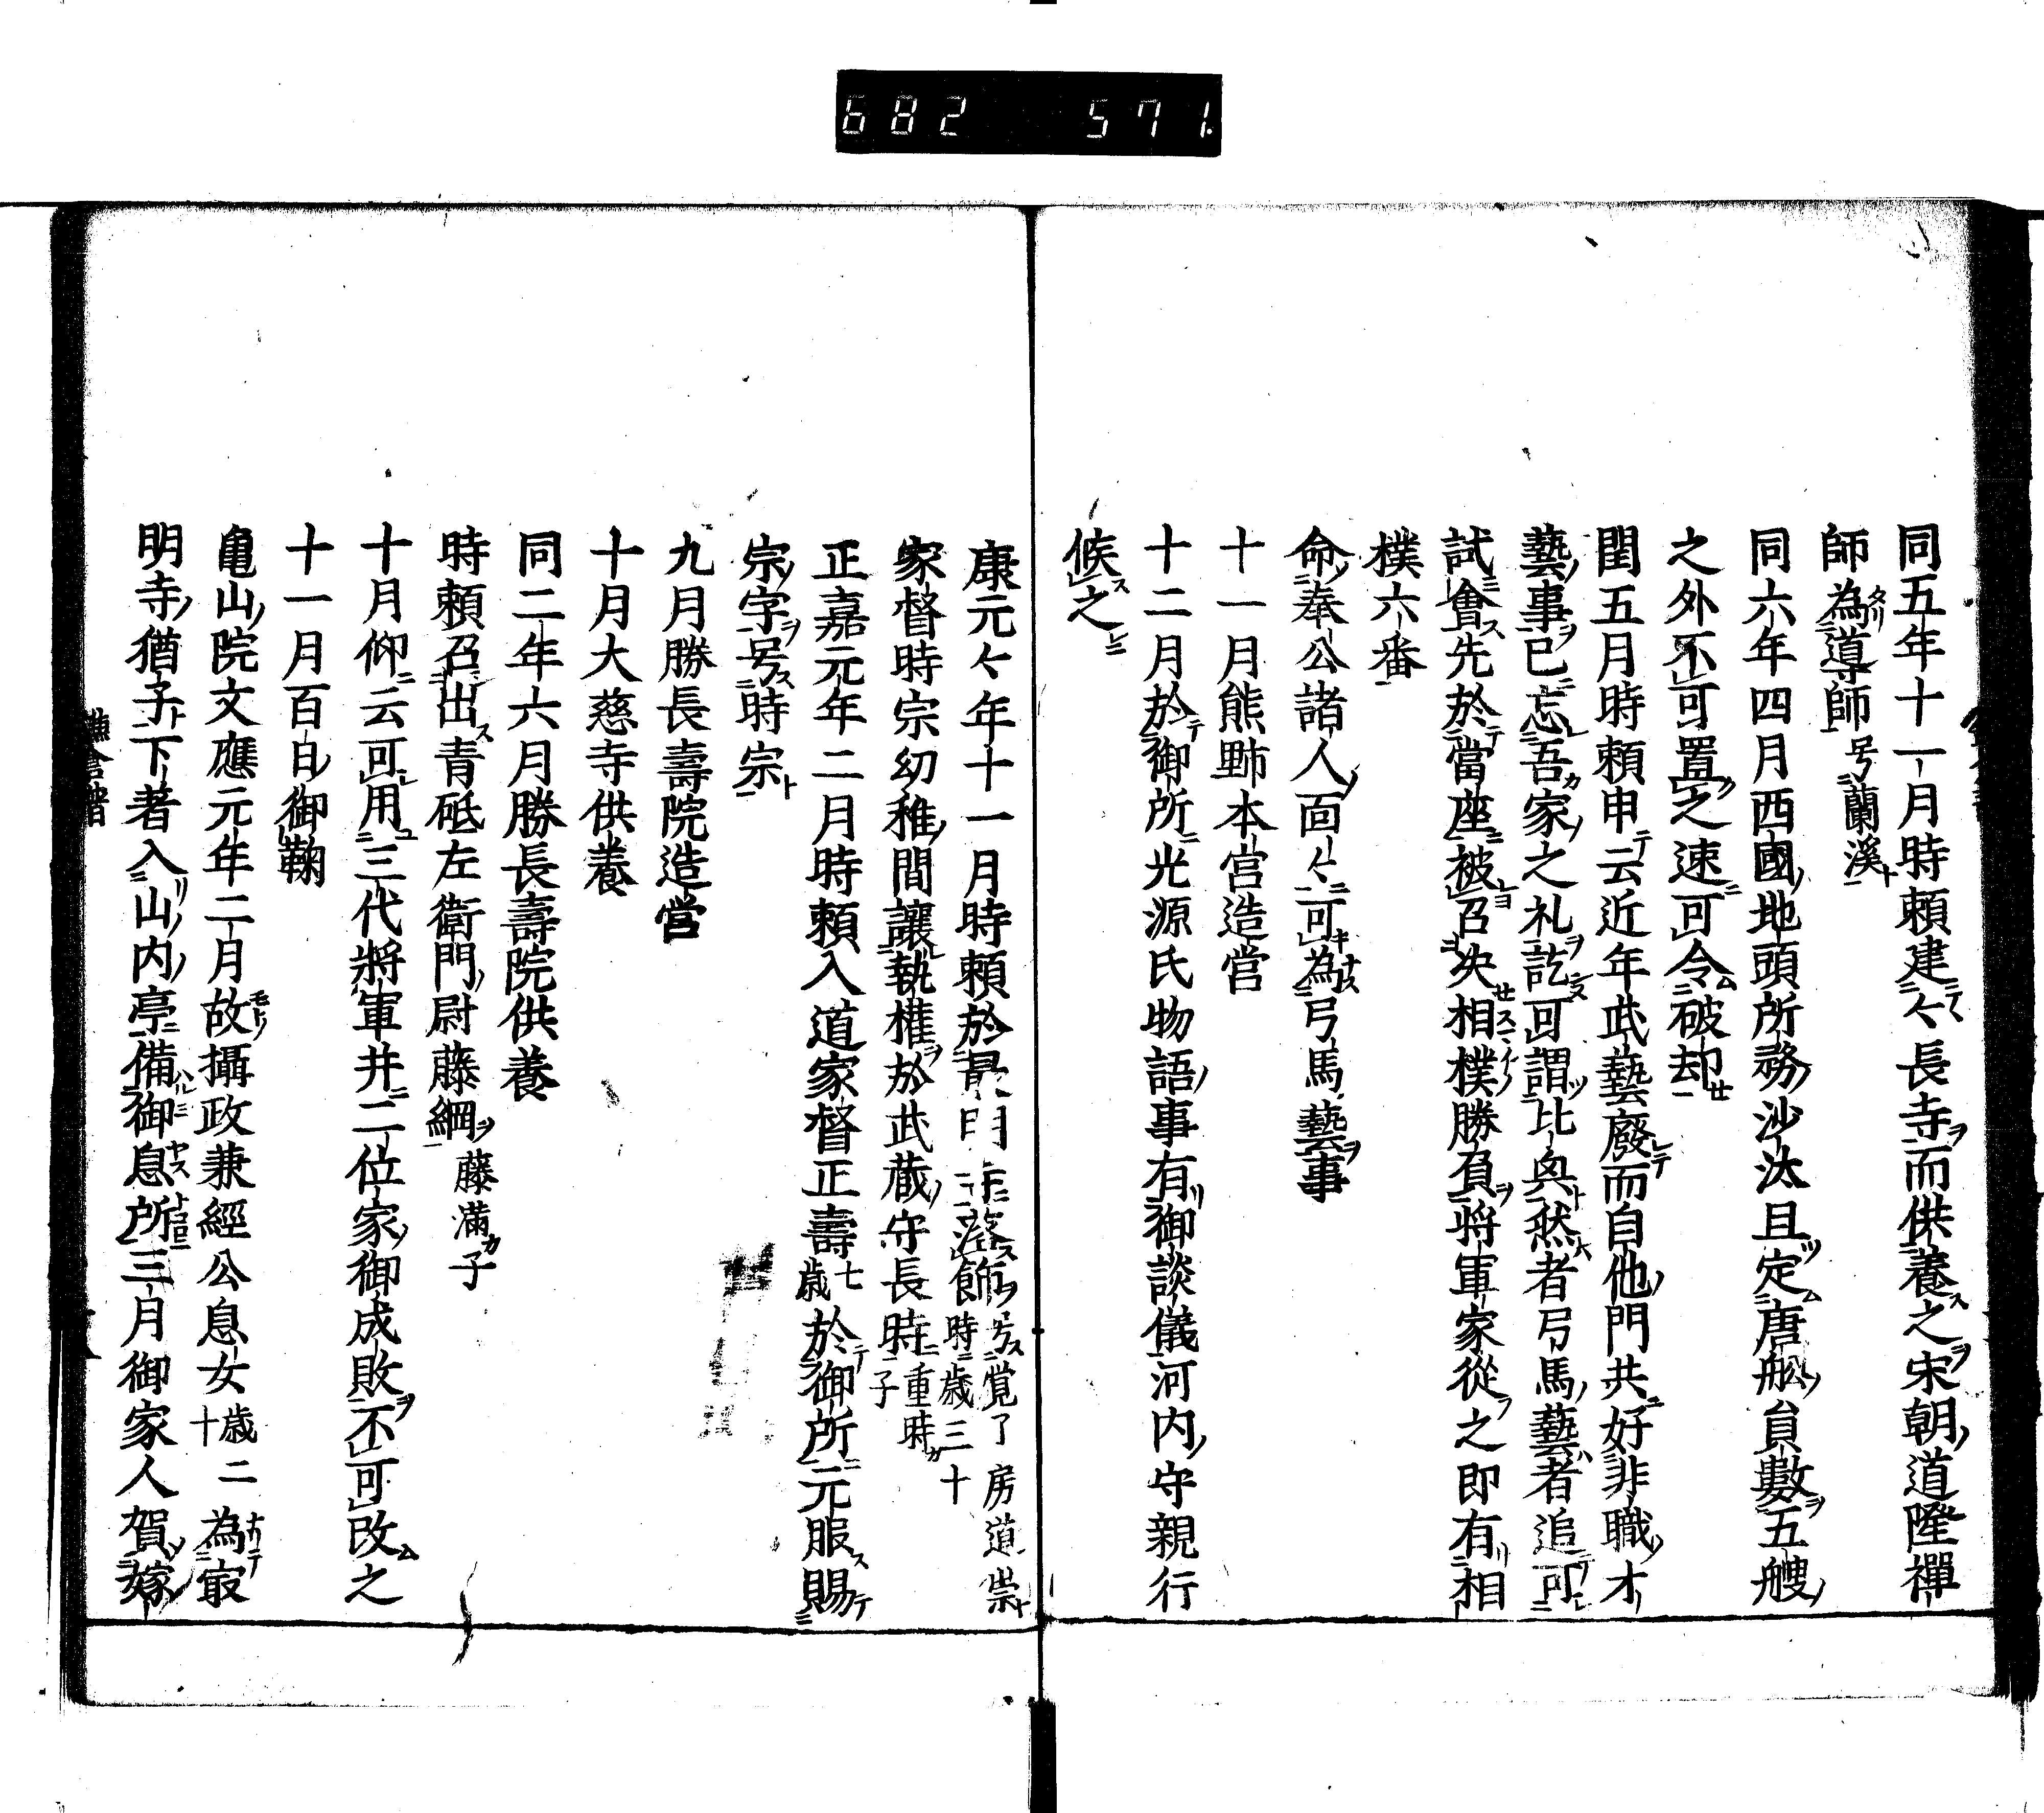 682 571
同五年十一月時頼建々長寺而供養之宋朝道隆禪
師為導師号蘭溪
同六年四月西國地頭所務沙汰且定唐舩員數五艘
之外不可置之速可令破却
閏五月時頼申云近年武藝廢而自他門共好非職才
藝事已忘吾家之礼訖可謂比興然者弓馬藝者追可
試會先於當座被召决相撲勝負將軍家從之即有相
撲六番
命奉公諸人面々可為弓馬藝事
十一月熊野本宮造営
十二月於御所光源氏物語事有御談儀河内守親行
候之
康元々年十一月時頼於最明寺落飾号覚了房道崇時歳三十
家督時宗幼稚間讓執權於武蔵守長時重時子
正嘉元年二月時頼入道家督正壽七歳於御所元服賜
宗字号時宗
九月勝長壽院造営
十月大慈寺供養
同二年六月勝長壽院供養
時頼召出青砥左衛門尉藤綱藤満子
十月仰云可用三代將軍并二位家御成敗不可改之
十一月百日御鞠
亀山院文應元年二月故攝政兼經公息女歳二十為㝡
明寺猶子下著入山内亭備御息所三月御家人賀嫁